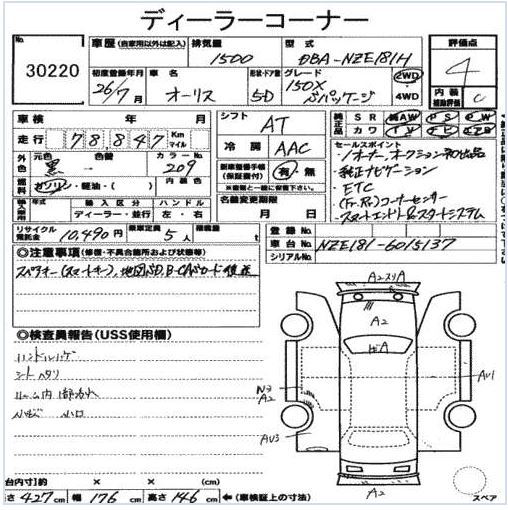 ディーラーコーナー
No. 30220
車歴 (自家用以外は記入) 排気量 1500 型式 DBA-NZE181H 評価点 4
初度登録年月 26/7月 車名 オーリス 形状・ドア数 5D グレード 150X Sパッケージ 2WD 4WD 内装補助評価 C
車検 年 月 シフト AT 純正品 SR AW PS PW カワ TV
走行 78847 Km マイル 冷房 AAC
セールスポイント
・1オーナー、オークション初出品
・純正ナビゲーション
・ETC
・(Fr.Rr)コーナーセンサー
・スマートエントリー&スタートシステム
外色 元色 黒 色替 カラーNo. 209 (保証書付) 有・無
燃料 ガソリン・軽油・( ) 内装色
年式 輸入区分 ディーラー・並行 ハンドル 左・右 名義変更期限 月 日
リサイクル預託金 10,490円 乗車定員 5人 積載量 t
登録No.
車台No. NZE181-6015137
シリアルNo.
◎注意事項 (修復・不具合箇所および状態等)
スペアキー(スマートキー)、地図SD、B-CASカード後送
◎検査員報告(USS使用欄)
ハンドルハゲ
シートヘタリ
小キズ 小凹
A2スリA
A2
A
A2
AU1
AU3
A2
スペア
車台内寸)約 × × (cm)
長さ 427cm 幅 176cm 高さ 146cm ←(車検証上の寸法)